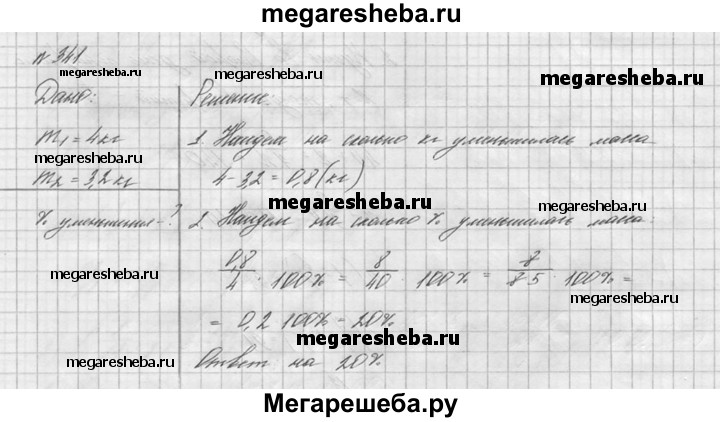 megaresheba.ru
№ 341
megaresheba.ru
megaresheba.ru
megaresheba.ru
Дано:
Решение:
m₁ = 4кг
1. Найдем на сколько кг уменьшилась масса
megaresheba.ru
m₂ = 3,2 кг
4 - 3,2 = 0,8 (кг)
megaresheba.ru
% уменьшения - ?
2. Найдем на сколько % уменьшилась масса:
megaresheba.ru
0,8/4 · 100% = 8/40 · 100% = 8/8·5 · 100% =
megaresheba.ru
= 0,2 100% = 20%
megaresheba.ru
megaresheba.ru
Ответ на 20%
Мегарешеба.ру